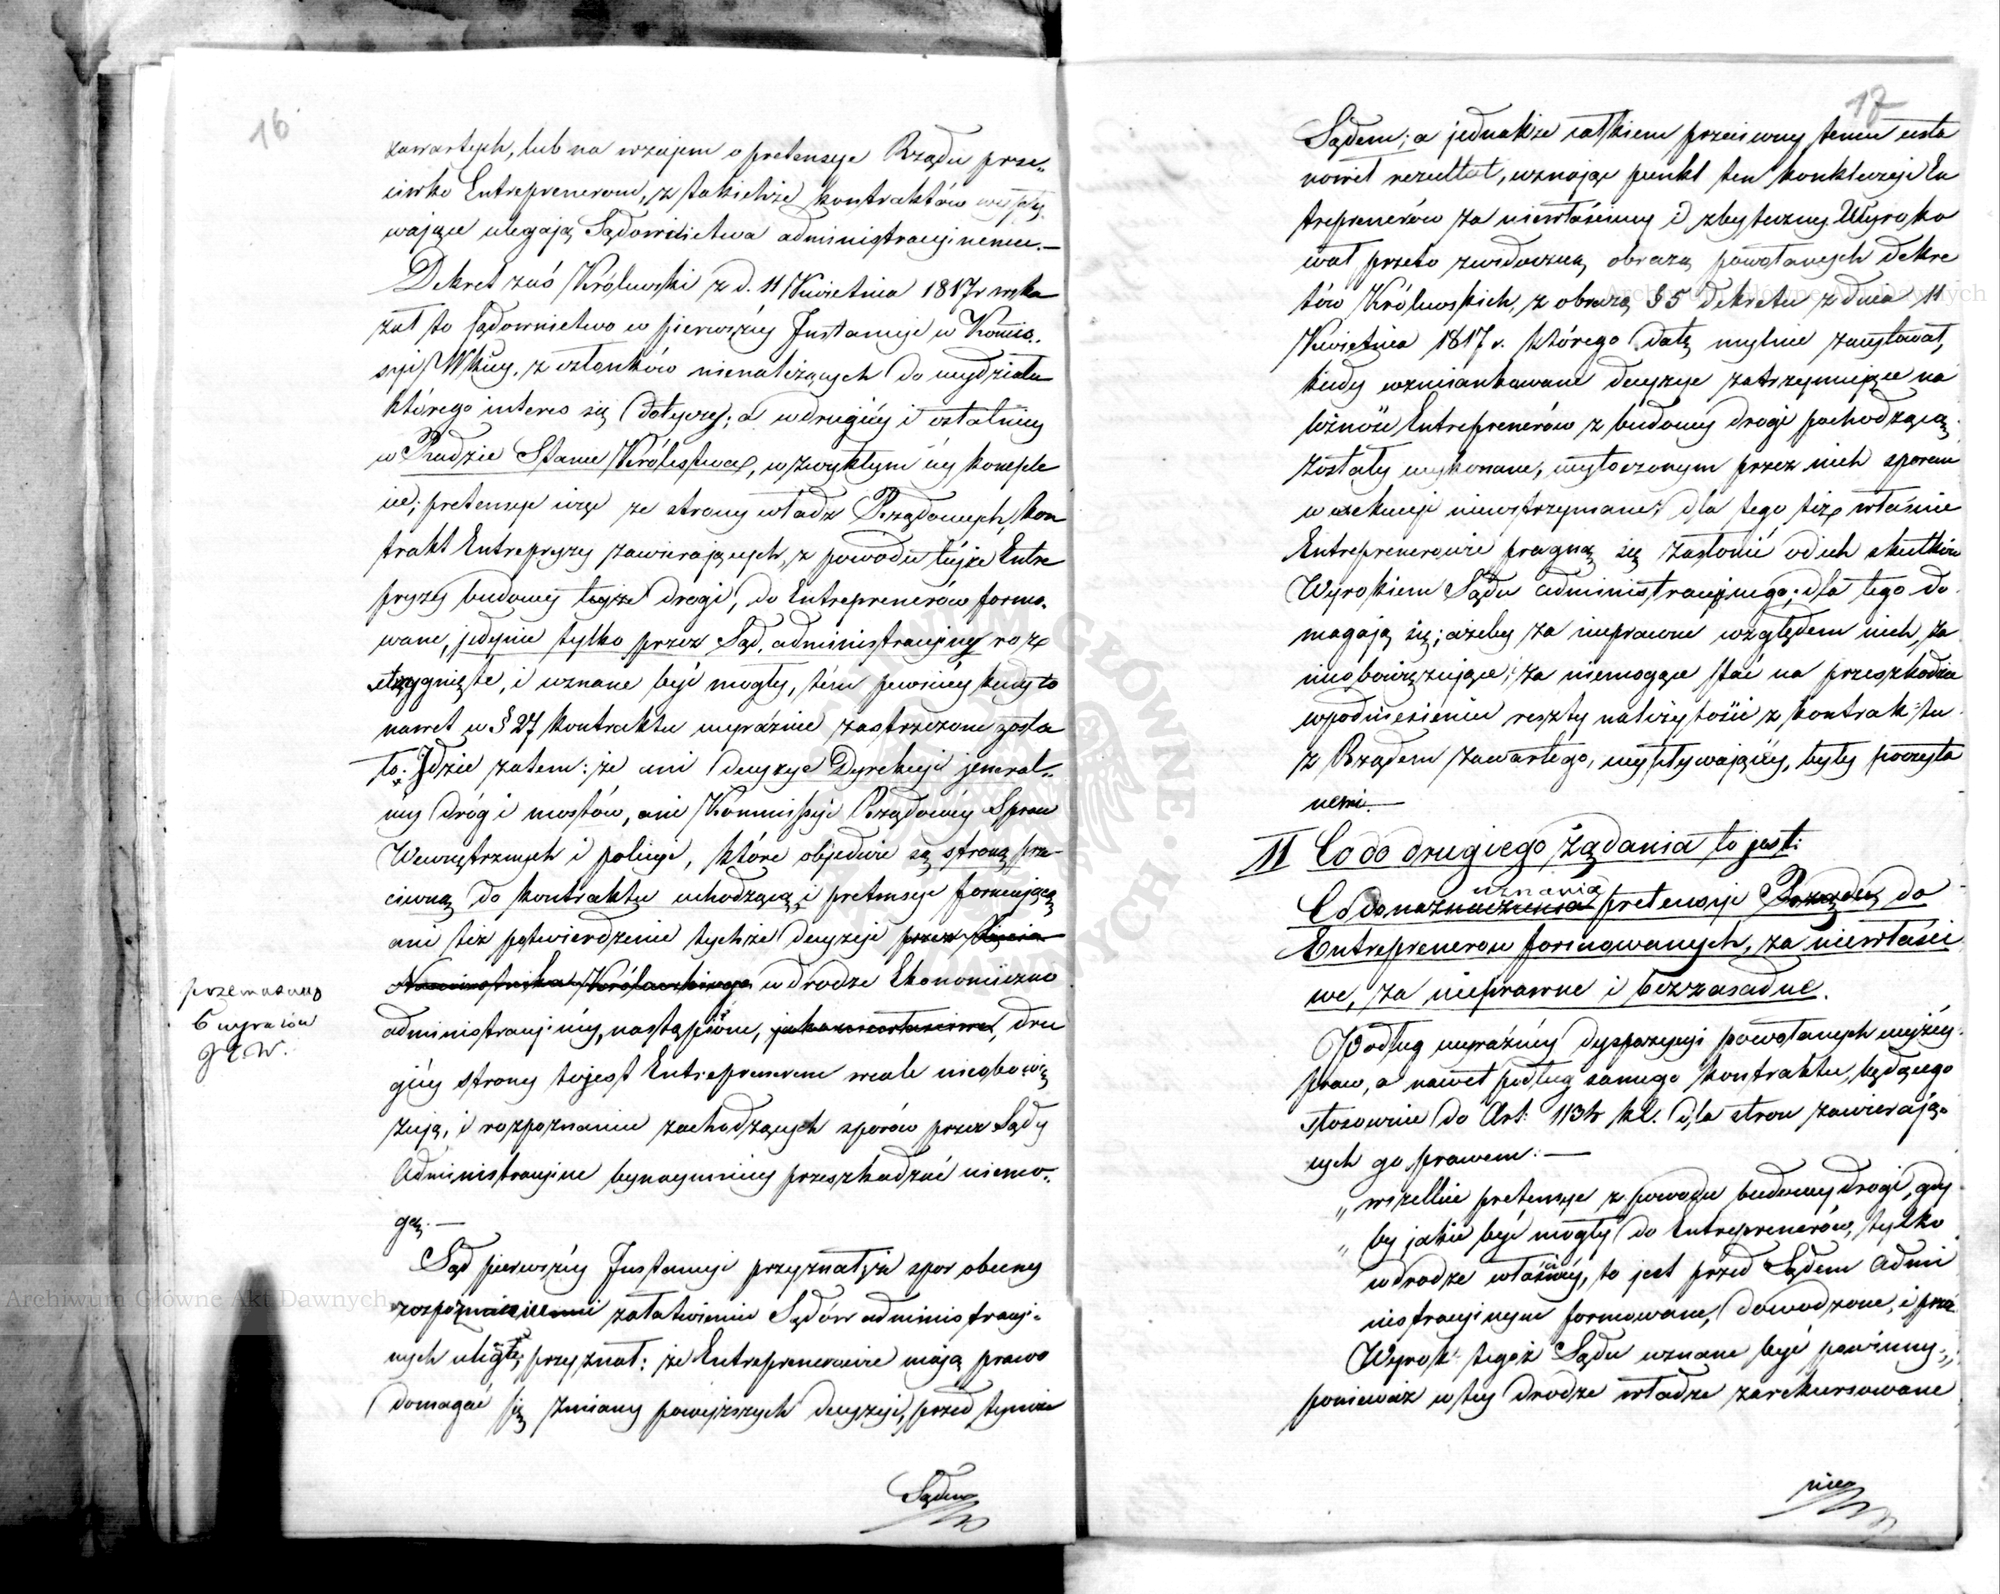 16
zawartych, lub na wzajem o pretensye Rządu prze„
ciwko Entreprenerom, z takichże kontraktów wypły„
wające ulegają Sądownictwu administracyjnemu.—
Dekret zaś Królewski z d. 11 Kwietnia 1817 r wska
zał to sądownictwo w pierwszéy Instancyi w Komis„
syi Wkiéy, z członków nienależących do wydziału
którego interes się dotyczy; a w drugiéy i ostatniéy
w Radzie Stanu Królestwa, w zwykłym jéy komple
cie; pretensye więc ze strony władz Rządowych, kon
trakt Entrepryzy zawierających, z powodu téjże Entre
pryzy budowy tejże drogi, do Entreprenerów formo„
wane, jedynie tylko przez Sąd administracyjny roz
strzygnięte, i uznane być mogły, tém pewniéy kiedy to
nawet w § 27 kontraktu wyraźnie zastrzeżone zosta
ło. Idzie zatem: że ani decyzye Dyrekcyi jeneral„
néy dróg i mostów, ani Kommissyi Rządowéy Spraw
Wewnętrznych i policyi, które obiedwie są stroną prze„
ciwną do kontraktu wchodzącą i pretensye formującą
ani téż potwierdzenie tychże decyzyi przez Xięcia
Namiestnika Królewskiego w drodze Ekonomiczno
administracyjnéy, nastąpione, jako niewłaściwe, dru
giéy strony to jest Entreprenerów wcale nieobowią
zują, i rozpoznaniu zachodzących sporów przez Sądy
Administracyjne bynaymniéy przeszkadzać niemo„
gą.—
przemazano
6 wyrazów
Sąd pierwszéy Instancyi przyznał, że spór obecny
rozpoznaniu i załatwieniu Sądów administracyj„
nych uległ, przyznał: że Entreprenerowie mają prawo
domagać się zmiany powyższych decyzyi, przed tymże
Sądem
17
Sądem; a jednakże całkiem przeciwny temu usta
nowił rezultat, uznając punkt ten konkluzyi En
treprenerów za niewłaściwy i zbyteczny. Wyroko
wał przeto z widoczną obrazą powołanych dekre
tów Królewskich, z obrazą § 5 Dekretu z dnia 11
Kwietnia 1817 r. którego datę mylnie zacytował,
kiedy wzmiankowane decyzye zatrzymujące na
leżność Entreprenerów z budowy drogi pochodzącą
zostały wykonane, wytoczonym przez nich sporem
w exekucyi niewstrzymane, dla tego téż właśnie
Entreprenerowie pragną się zasłonić od ich skutków
Wyrokiem Sądu administracyjnego; dla tego do
magają się; ażeby za nieprawne względem nich, za
nieobowiązujące; za niemogące stać na przeszkodzie
w podniesieniu reszty należytości z kontraktu
z Rządem zawartego, wypływającéy, były poczyta
nemi.—
II Co do drugiego żądania to jest:
Co do uznania pretensyi Rządu do
Entreprenerów formowanych, za niewłaści
we, za nieprawne i bezzasadne.
Podług wyraźnéy dyspozycyi powołanych wyżéy
praw, a nawet podług samego kontraktu, będącego
stosownie do Art: 1134 k.C. dla stron zawierają„
cych go prawem:—
„wszelkie pretensye z powodu budowy drogi, gdy
„by jakie być mogły do Entreprenerów, tylko
w drodze właściwéy, to jest przed Sądem Admi
nistracyjnym formowane, dowodzone, i prze
Wyrok tegoż Sądu uznane być powinny„,
ponieważ w téy drodze władze zarekursowane
nie